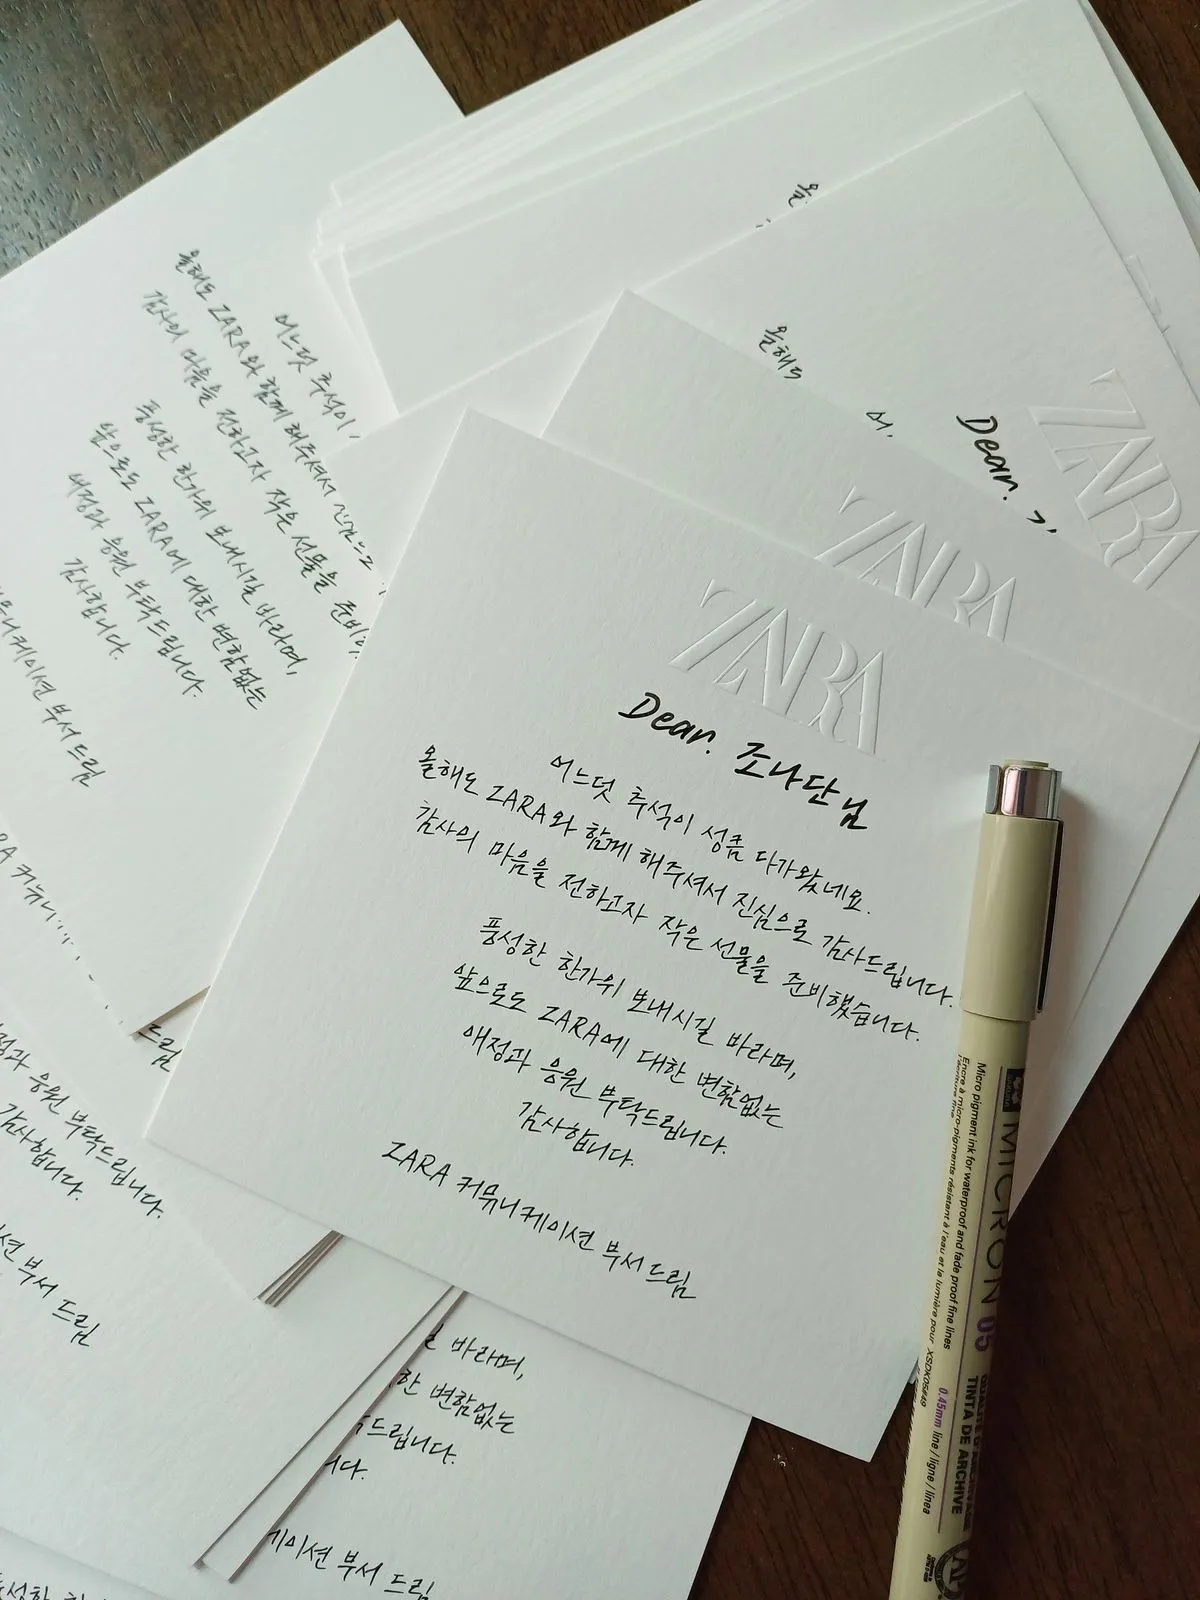 올해도 ZARA와 함께 해주셔서
어느덧 추석이
감사의 마음을 전하고자 작은 선물을
풍성한 한가위 보내시길 바라며,
앞으로도 ZARA에 대한 변함없는
애정과 응원 부탁드립니다.
감사합니다.
부서 드림
올해도
어
Dear.
ZARA
ZARA
ZARA
Dear. 조나단님
어느덧 추석이 성큼 다가왔네요.
올해도 ZARA와 함께 해주셔서 진심으로 감사드립니다.
감사의 마음을 전하고자 작은 선물을 준비했습니다.
풍성한 한가위 보내시길 바라며,
앞으로도 ZARA에 대한 변함없는
애정과 응원 부탁드립니다.
감사합니다.
ZARA 커뮤니케이션 부서 드림
드림
응원 부탁드립니다.
감사합니다.
부서 드림
바라며,
변함없는
드립니다.
부서 드림
Micro pigment ink for waterproof and fade proof fine lines
Encre à micro-pigments résistant à l'eau et la lumière pour
MICRON 05
XSDK05#49
0.45mm line / ligne / línea
TINTA DE ARCHIVE